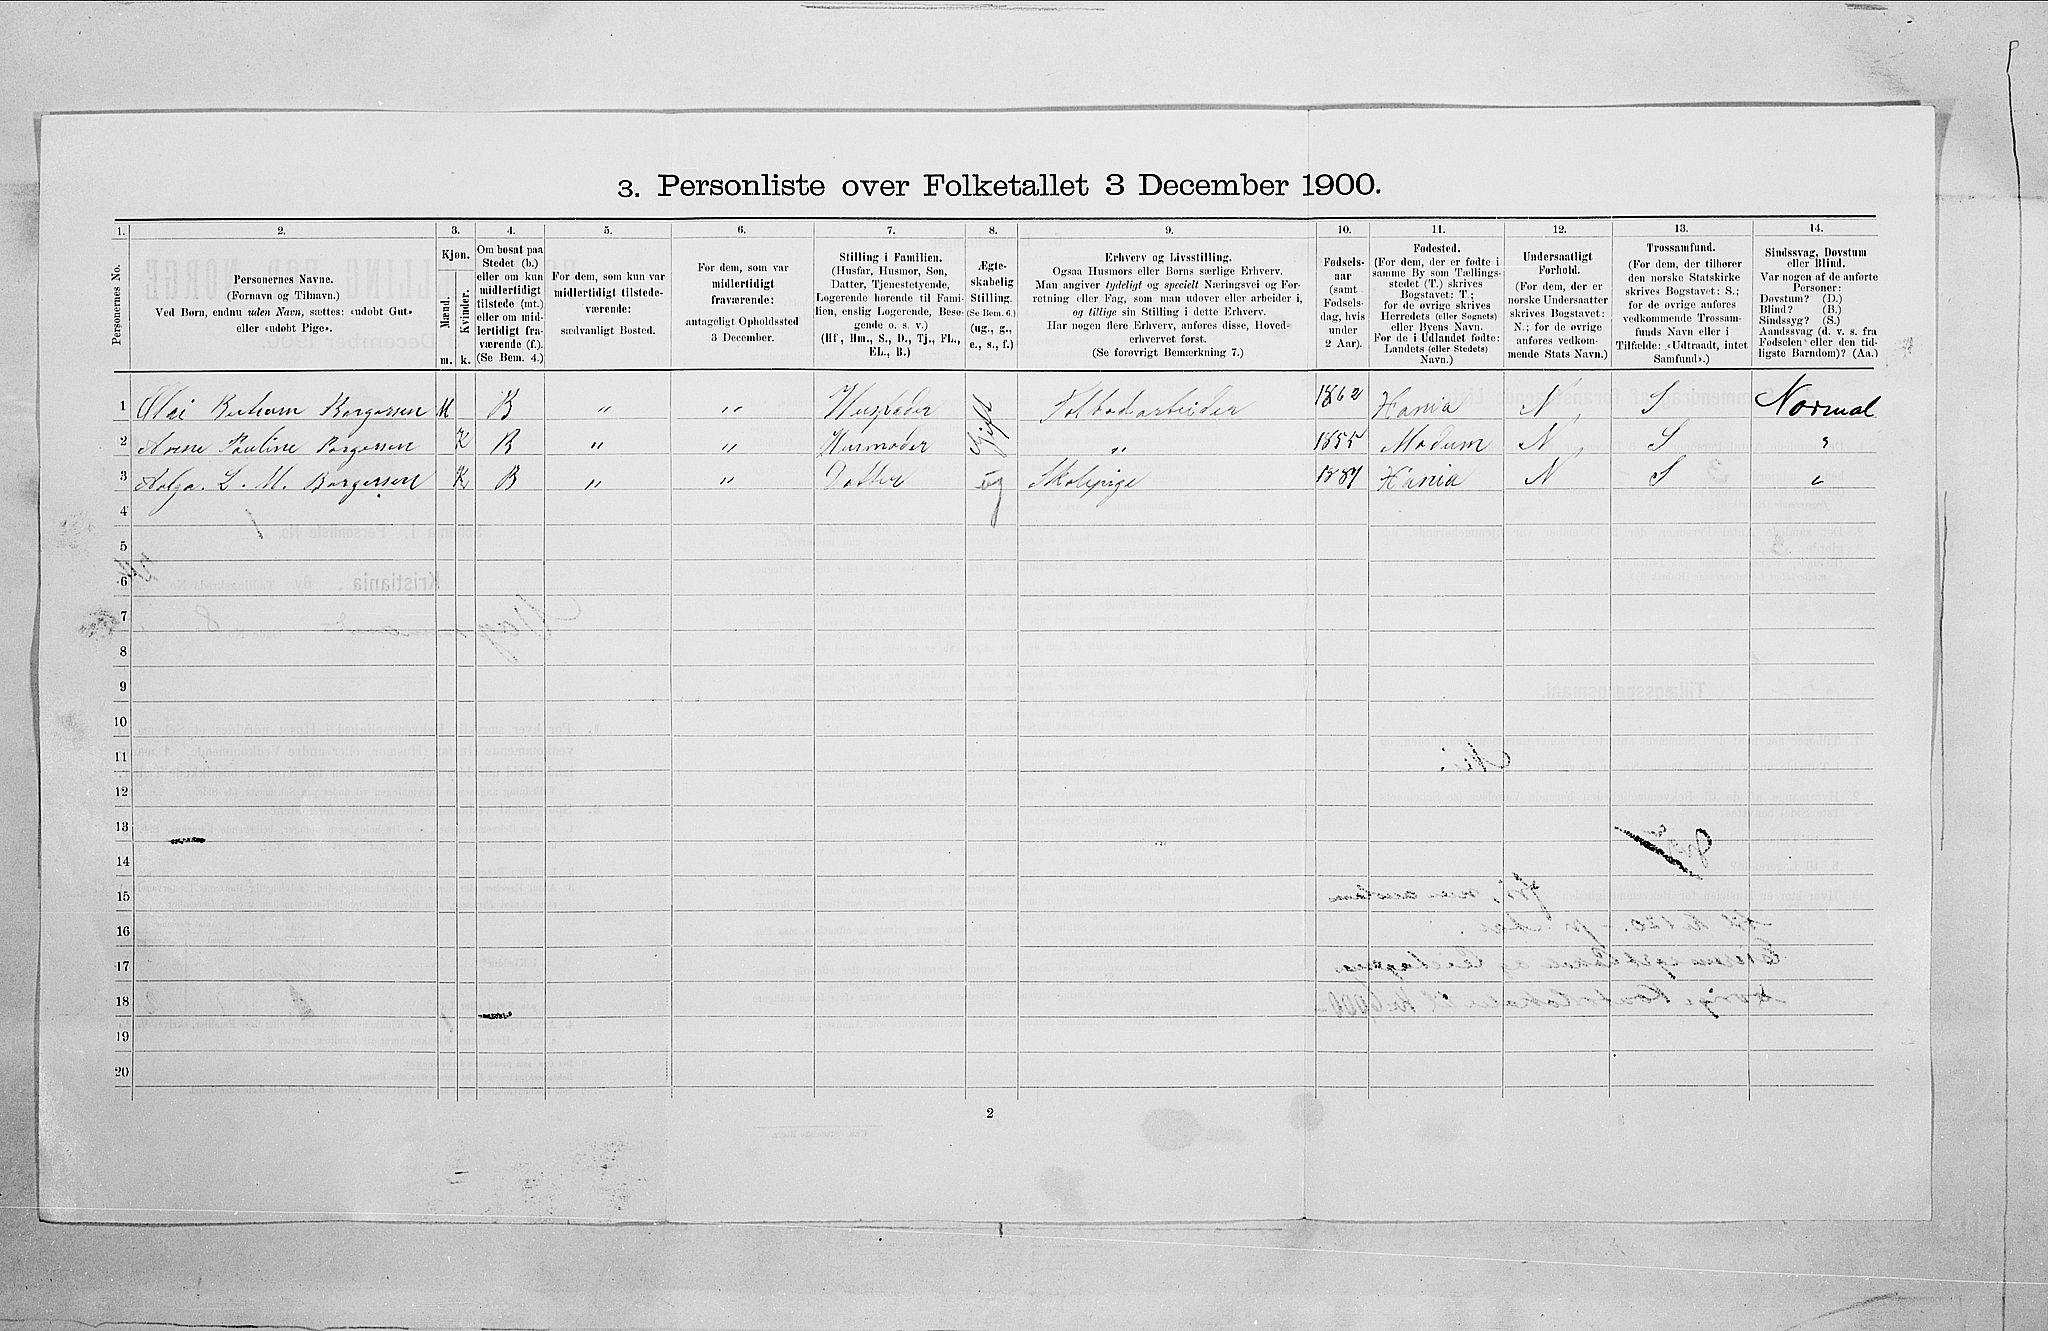 3. Personliste over Folketallet 3 December 1900.
1. 2. 3. 4. 5. 6. 7. 8. 9. 10. 11. 12. 13. 14.
Personernes No.
Personernes Navne.
(Fornavn og Tilnavn.)
Ved Børn, endnu uden Navn, sættes: «udøbt Gut»
eller «udøbt Pige».
Kjøn.
Mænd.
Kvinder.
m. k.
Om bosat paa
Stedet (b.)
eller om kun
midlertidigt
tilstede (mt.)
eller om mid-
lertidigt fra-
værende (f.).
(Se Bem. 4.)
For dem, som kun var
midlertidigt tilstede-
værende:
sædvanligt Bosted.
For dem, som var
midlertidigt
fraværende:
antageligt Opholdssted
3 December.
Stilling i Familien.
(Husfar, Husmor, Søn,
Datter, Tjenestetyende,
Logerende hørende til Fami-
lien, enslig Logerende, Besø-
gende o. s. v.)
(Hf, Hm., S., D., Tj., FL.,
EL., B.)
Ægte-
skabelig
Stilling.
(Se Bem. 6.)
(ug., g.,
e., s., f.)
Erhverv og Livsstilling.
Ogsaa Husmors eller Børns særlige Erhverv.
Man angiver tydeligt og specielt Næringsvei og For-
retning eller Fag, som man udøver eller arbeider i,
og tillige sin Stilling i dette Erhverv.
Har nogen flere Erhverv, anføres disse, Hoved-
erhvervet først.
(Se forøvrigt Bemærkning 7.)
Fødsels-
aar
(samt
Fødsels-
dag, hvis
under
2 Aar).
Fødested.
(For dem, der er fødte i
samme By som Tællings-
stedet (T.) skrives
Bogstavet: T;
for de øvrige skrives
Herredets (eller Sognets)
eller Byens Navn.
For de i Udlandet fødte:
Landets (eller Stedets)
Navn.)
Undersaatligt
Forhold.
(For dem, der er
norske Undersaatter
skrives Bogstavet:
N.; for de øvrige
anføres vedkom-
mende Stats Navn.)
Trossamfund.
(For dem, der tilhører
den norske Statskirke
skrives Bogstavet: S.;
for de øvrige anføres
vedkommende Trossam-
funds Navn eller i
Tilfælde: «Udtraadt, intet
Samfund».)
Sindssvag, Døvstum
eller Blind.
Var nogen af de anførte
Personer:
Døvstum? (D.)
Blind? (B.)
Sindssyg? (S.)
Aandssvag (d. v. s. fra
Fødselen eller den tid-
ligste Barndom)? (Aa.)
1 Olai Borgersen M B " " Husfader Gift Toldbodarbeider 1862 Kania N. S Normal
2 Anne Pauline Borgersen K B " " Husmoder " 1855 Modum N. S "
3 Aslga. L. M. Borgersen K B " " Datter ug Skolepige 1887 Kania N S "
4
5
6
7
8
9
10
11
12
13
14
15
16
17
18
19
20
2